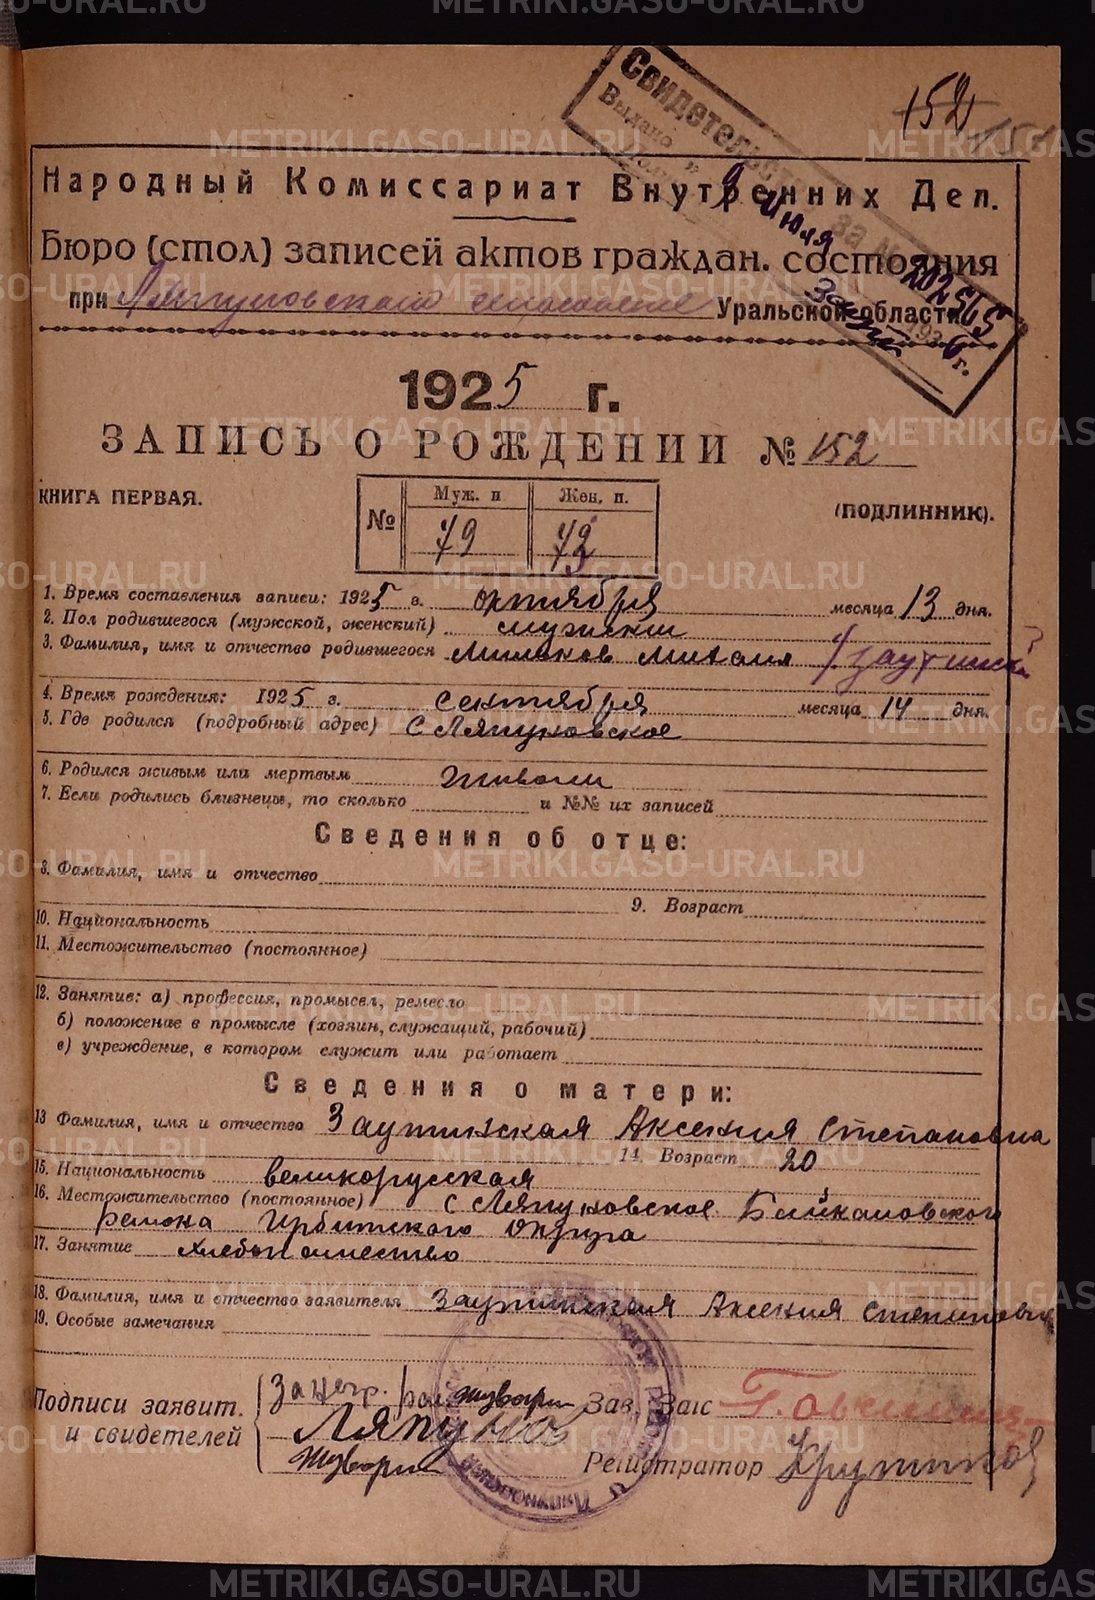 METRIKI.GASO-URAL.RU
Свидетельство
Выдано
за №
9 Июля
202565
192 6 г.
152
Народный Комиссариат Внутренних Дел.
Бюро (стол) записей актов граждан. состояния
при Ляпуновском Уральской области
1925 г.
ЗАПИСЬ О РОЖДЕНИИ № 152
КНИГА ПЕРВАЯ.
(ПОДЛИННИК).
№ Муж. п Жен. п.
79 73
1. Время составления записи: 1925 г. октября месяца 13 дня.
2. Пол родившегося (мужской, женский) мужской
3. Фамилия, имя и отчество родившегося Михаил
4. Время рождения: 1925 г. сентября месяца 14 дня.
5. Где родился (подробный адрес) С Ляпуновское
6. Родился живым или мертвым живым
7. Если родились близнецы, то сколько и №№ их записей
Сведения об отце:
8. Фамилия, имя и отчество
9. Возраст
10. Национальность
11. Местожительство (постоянное)
12. Занятие: а) профессия, промысел, ремесло
б) положение в промысле (хозяин, служащий, рабочий)
в) учреждение, в котором служит или работает
Сведения о матери:
13 Фамилия, имя и отчество Заутинская Аксения Степановна
14. Возраст 20
15. Национальность великорусская
16. Местожительство (постоянное) с Ляпуновское Байкаловского
района Ирбитского Округа
17. Занятие хлебопашество
18. Фамилия, имя и отчество заявителя Заутинская Аксения Степановна
19. Особые замечания
Подписи заявит. и свидетелей
За негр.
Ляпунов
Зав. Загс
Регистратор